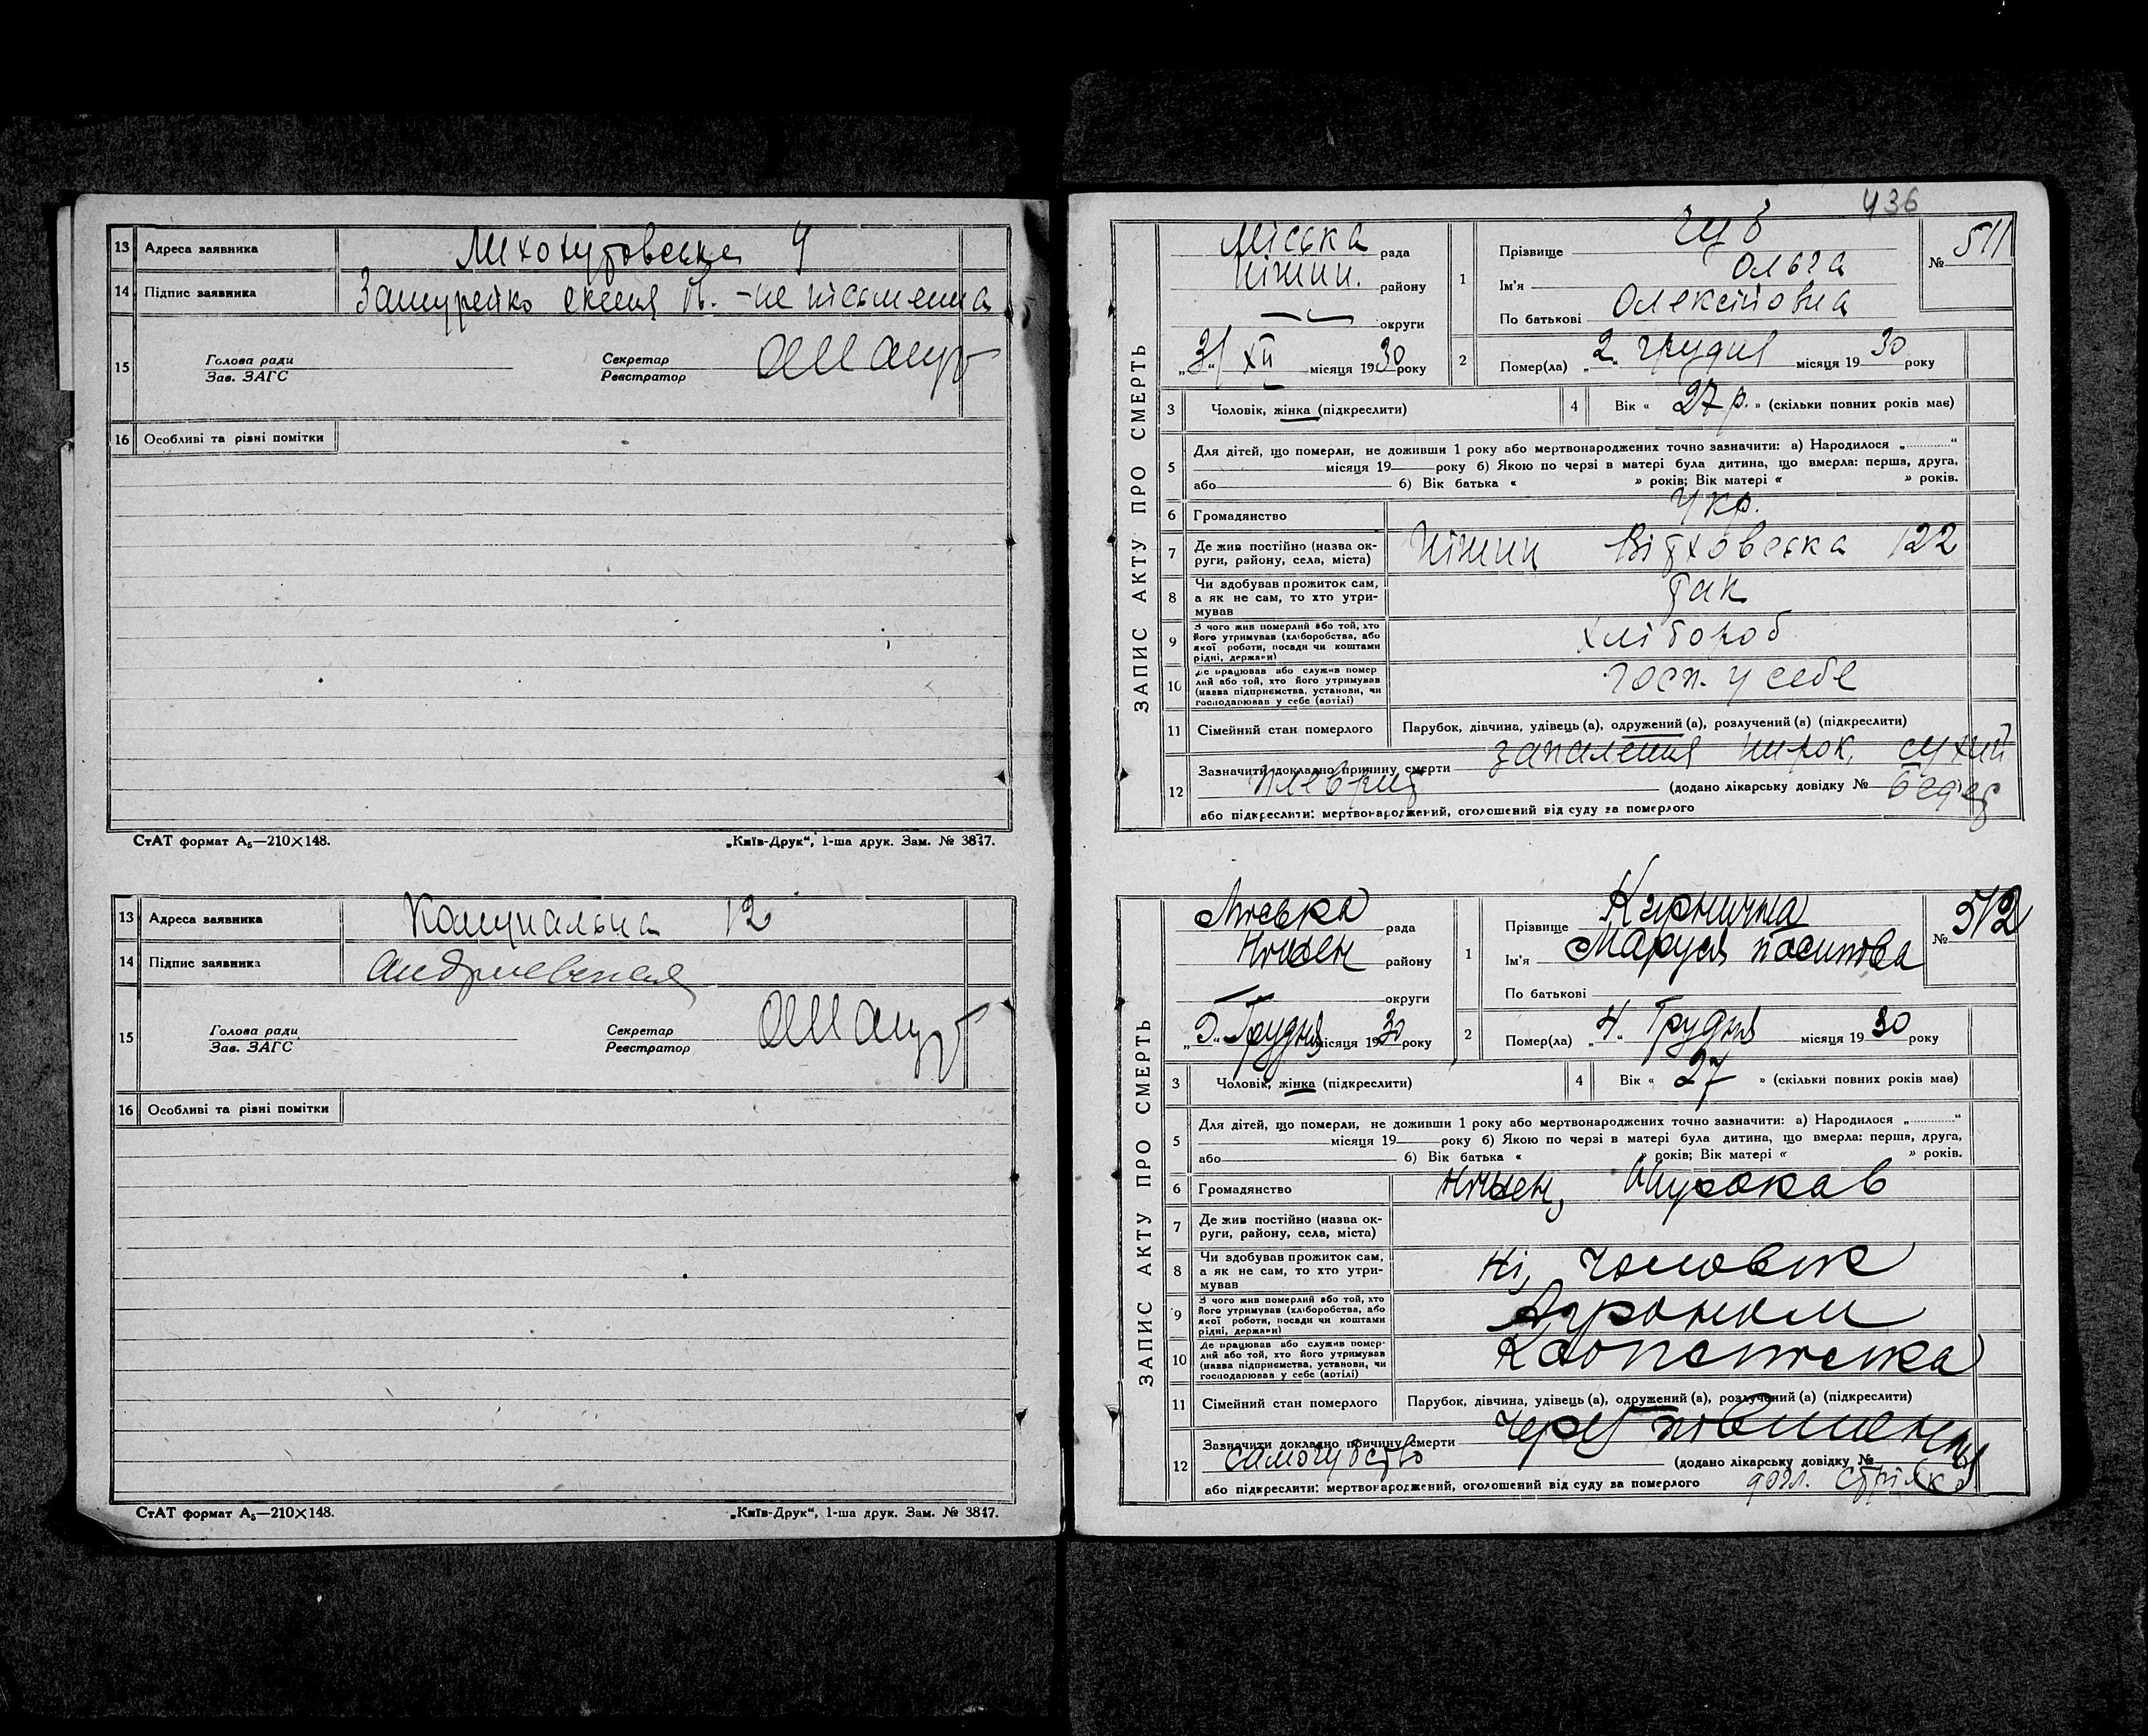 13 Адреса заявника Мехохутовська 4
14 Підпис заявника Зашурейко не письменна
15 Голова ради Зав. ЗАГС Секретар Реєстратор
16 Особливі та різні помітки
СтАТ формат А5—210×148. „Київ-Друк“, 1-ша друк. Зам. № 3847.
13 Адреса заявника Комунальна 12
14 Підпис заявника Андриевская
15 Голова ради Зав. ЗАГС Секретар Реєстратор
16 Особливі та різні помітки
СтАТ формат А5—210×148. „Київ-Друк“, 1-ша друк. Зам. № 3847.
436
ЗАПИС АКТУ ПРО СМЕРТЬ
Міська рада
Ніжин. району
округи
„3“ XII місяця 1930 року
1 Прізвище Чуб
Ім'я Ольга
По батькові Олексіївна
№ 511
2 Помер(ла) „2“ грудня місяця 1930 року
3 Чоловік, жінка (підкреслити)
4 Вік « 27 р. » (скільки повних років має)
5 Для дітей, що померли, не доживши 1 року або мертвонароджених точно зазначити: а) Народилося „ “
місяця 19 року б) Якою по черзі в матері була дитина, що вмерла: перша, друга,
або 6) Вік батька « » років; Вік матері « » років.
6 Громадянство Укр.
7 Де жив постійно (назва округи, району, села, міста) Ніжин 122
8 Чи здобував прожиток сам, а як не сам, то хто утримував так
9 З чого жив померлий або той, хто його утримував (хліборобства, або якої роботи, посади чи коштами рідні, держави) хлібороб
10 Де працював або служив померлий або той, хто його утримував (назва підприємства, установи, чи господарював у себе (артілі) госп. у себе
11 Сімейний стан померлого Парубок, дівчина, удівець (а), одружений (а), розлучений (а) (підкреслити)
12 Зазначити докладно причину смерти запалення нирок, сухий
плеврит (додано лікарську довідку №
або підкреслити: мертвонароджений, оголошений від суду за померлого
ЗАПИС АКТУ ПРО СМЕРТЬ
Міська рада
Ніжен району
округи
„5“ Грудня місяця 1930 року
1 Прізвище Кирпична
Ім'я Маруся
По батькові
№ 512
2 Помер(ла) „4“ Грудня місяця 1930 року
3 Чоловік, жінка (підкреслити)
4 Вік « 27 » (скільки повних років має)
5 Для дітей, що померли, не доживши 1 року або мертвонароджених точно зазначити: а) Народилося „ “
місяця 19 року б) Якою по черзі в матері була дитина, що вмерла: перша, друга,
або 6) Вік батька « » років; Вік матері « » років.
6 Громадянство Ніжен,
7 Де жив постійно (назва округи, району, села, міста)
8 Чи здобував прожиток сам, а як не сам, то хто утримував Ні, чоловік
9 З чого жив померлий або той, хто його утримував (хліборобства, або якої роботи, посади чи коштами рідні, держави) Агроном
10 Де працював або служив померлий або той, хто його утримував (назва підприємства, установи, чи господарював у себе (артілі)
11 Сімейний стан померлого Парубок, дівчина, удівець (а), одружений (а), розлучений (а) (підкреслити)
12 Зазначити докладно причину смерти через повішення
самогубство (додано лікарську довідку №
або підкреслити: мертвонароджений, оголошений від суду за померлого